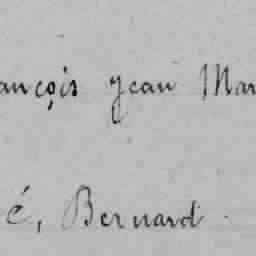 ançois Jean Mar
é, Bernard.